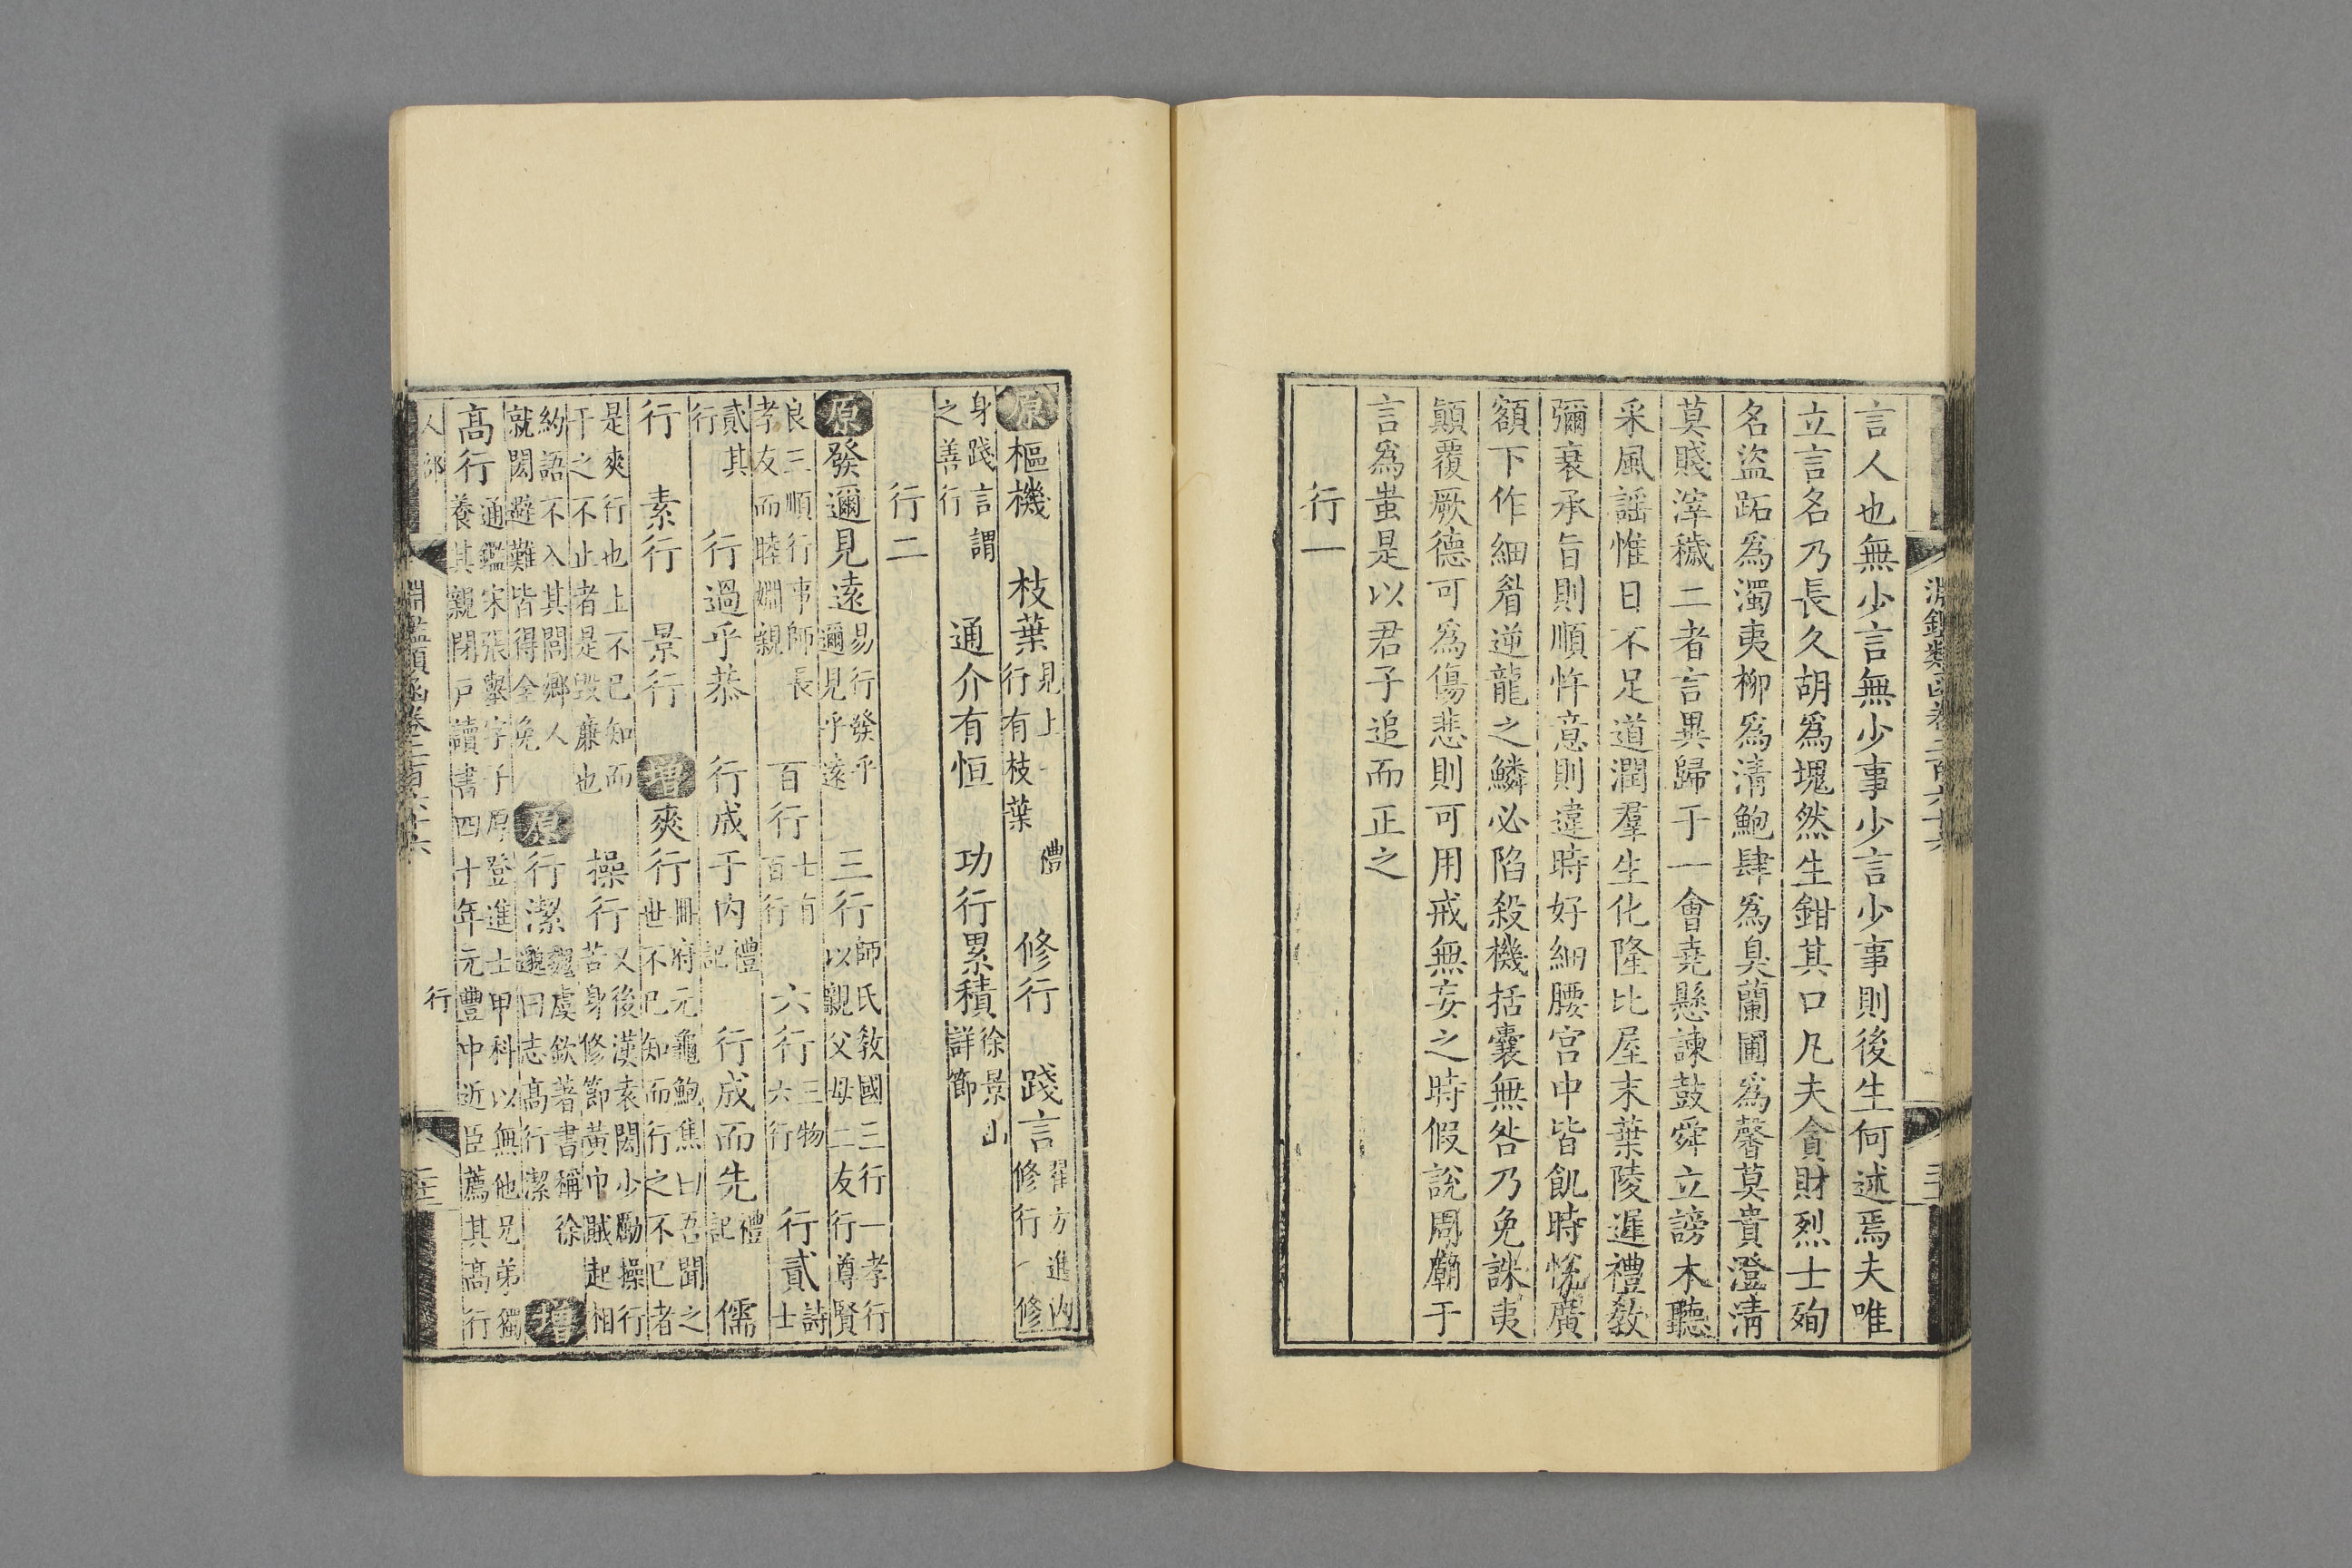 淵鑑類函卷二百六十六
言人也無少言無少事少言少事則後生何述焉夫唯
立言名乃長久胡爲塊然生鉗其口凡夫貪財烈士殉
名盜跖爲濁夷柳爲淸鮑肆爲臭蘭圃爲馨莫貴澄淸
莫賤滓穢二者言異歸于一會堯懸諫鼓舜立謗木聽
采風謡惟日不足道潤羣生化隆比屋末葉陵遲禮敎
彌衰承旨則順忤意則違時好細腰宮中皆飢時悅廣
額下作細眉逆龍之鱗必陷殺機括囊無咎乃免誅夷
顚覆厥德可爲傷悲則可用戒無妄之時假說周廟于
言爲蚩是以君子追而正之
行一
原樞機
枝葉見上
行有枝葉
禮
修行
踐言翟方進內
修行一修
身踐言謂
之善行
通介有恒
功行累積徐景山
詳節
行二
原發邇見遠易行發乎
邇見乎遠
三行師氏敎國三行一孝行
以親父母二友行尊賢
良三順行事師長
孝友而睦婣親
百行士有
百行
六行三物
六行
行貳詩
士
貳其
行
行過乎恭
行成于內禮
記
行成而先禮
記
儒
行
素行
景行
增爽行冊府元龜鮑焦曰吾聞之
世不已知而行之不已者
是爽行也上不已知而
于之不止者是毀廉也
操行又後漢袁閎少勵操行
苦身修節黃巾賊起相
約語不入其閭鄉人
就閎避難皆得全免
原行潔魏虞欽著書稱徐
邈曰志高行潔
增
高行通鑑宋張擧字子厚登進士甲科以無他兄弟獨
養其親閉戶讀書四十年元豐中近臣薦其高行
人部
淵鑑類函卷二百六十六
行